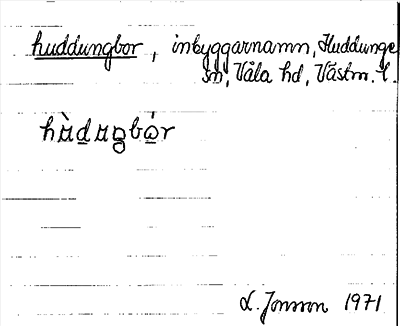 huddungbor, inbyggarnamn, Huddunge
sn, Våla hd, Västm. l.
hὰduŋbår
L. Jonsson 1971